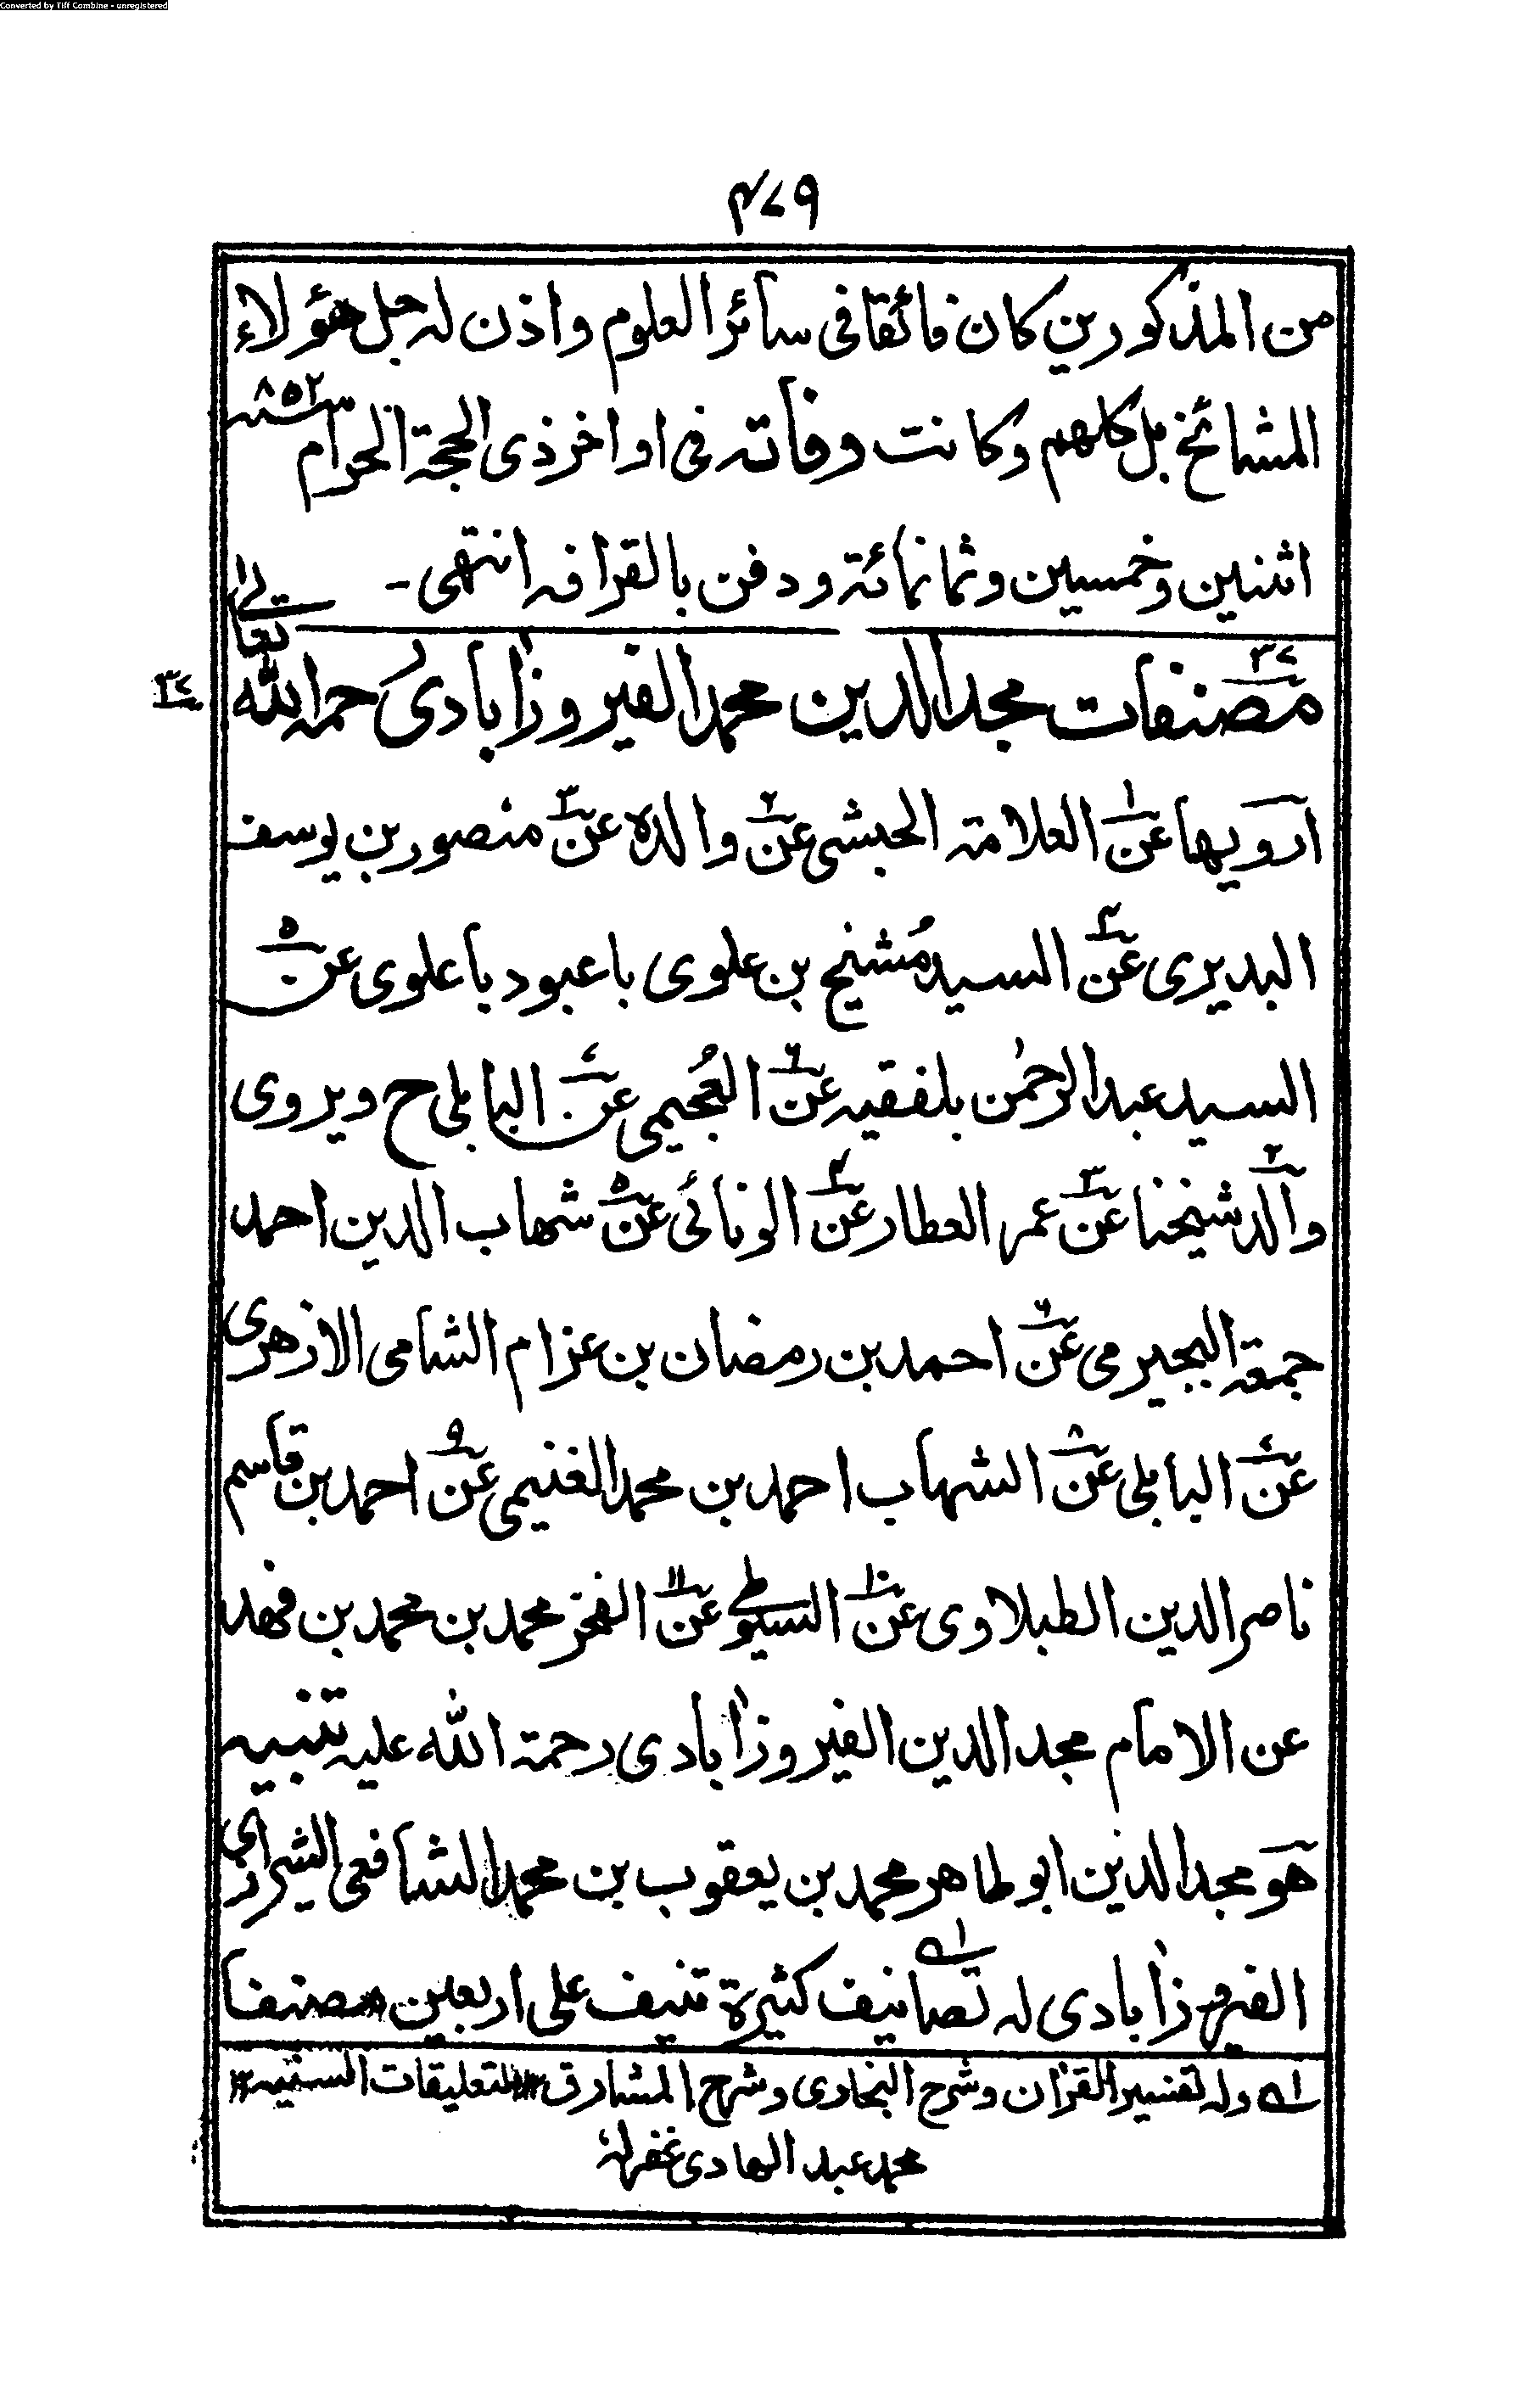 Converted by Tiff Combine - unregistered
٤٧٩
من المذكورين كان فائقا في سائر العلوم واذن له جل هؤلاء
المشائخ بل كلهم وكانت وفاته في اواخر ذي الحجة الحرام سنة ٨٥٢
اثنين وخمسين وثمانمائة ودفن بالقرافه انتهى -
٣٧ مصنفات مجد الدين محمد الفيروزاٰبادى رحمه الله تعالى
٣٧
ارويها عن١ العلامة الحبشى عن٢ والده عن٣ منصور بن يوسف
البديرى عن٤ السيد مُشيخ بن علوى باعبود باعلوى عن٥
السيد عبد الرحمٰن بلفقيه عن٦ العُجيمى عن٧ البابلى ح ويروى
والد٢ شيخنا عن٣ عمر العطار عن٤ الونائى عن٥ شهاب الدين احمد
جمعة البجيرمى عن٦ احمد بن رمضان بن عزام الشامى الازهرى
عن٧ البابلى عن٨ الشهاب احمد بن محمد الغنيمى عن٩ احمد بن قاسم
ناصر الدين الطبلاوى عن١٠ السيوطى عن١١ الفخر محمد بن محمد بن فهد
عن الامام مجد الدين الفيروزاٰبادى رحمة الله عليه تنبيه
هو مجد الدين ابو طاهر محمد بن يعقوب بن محمد الشافعى الشيرازى
الفيروزاٰبادى له تصانيف١ كثيرة تنيف على اربعين مصنفا
١ وله تفسير القراٰن وشرح البخارى وشرح المشارق ١٢ التعليقات السنيه ١٢
محمد عبد الهادى غفر له